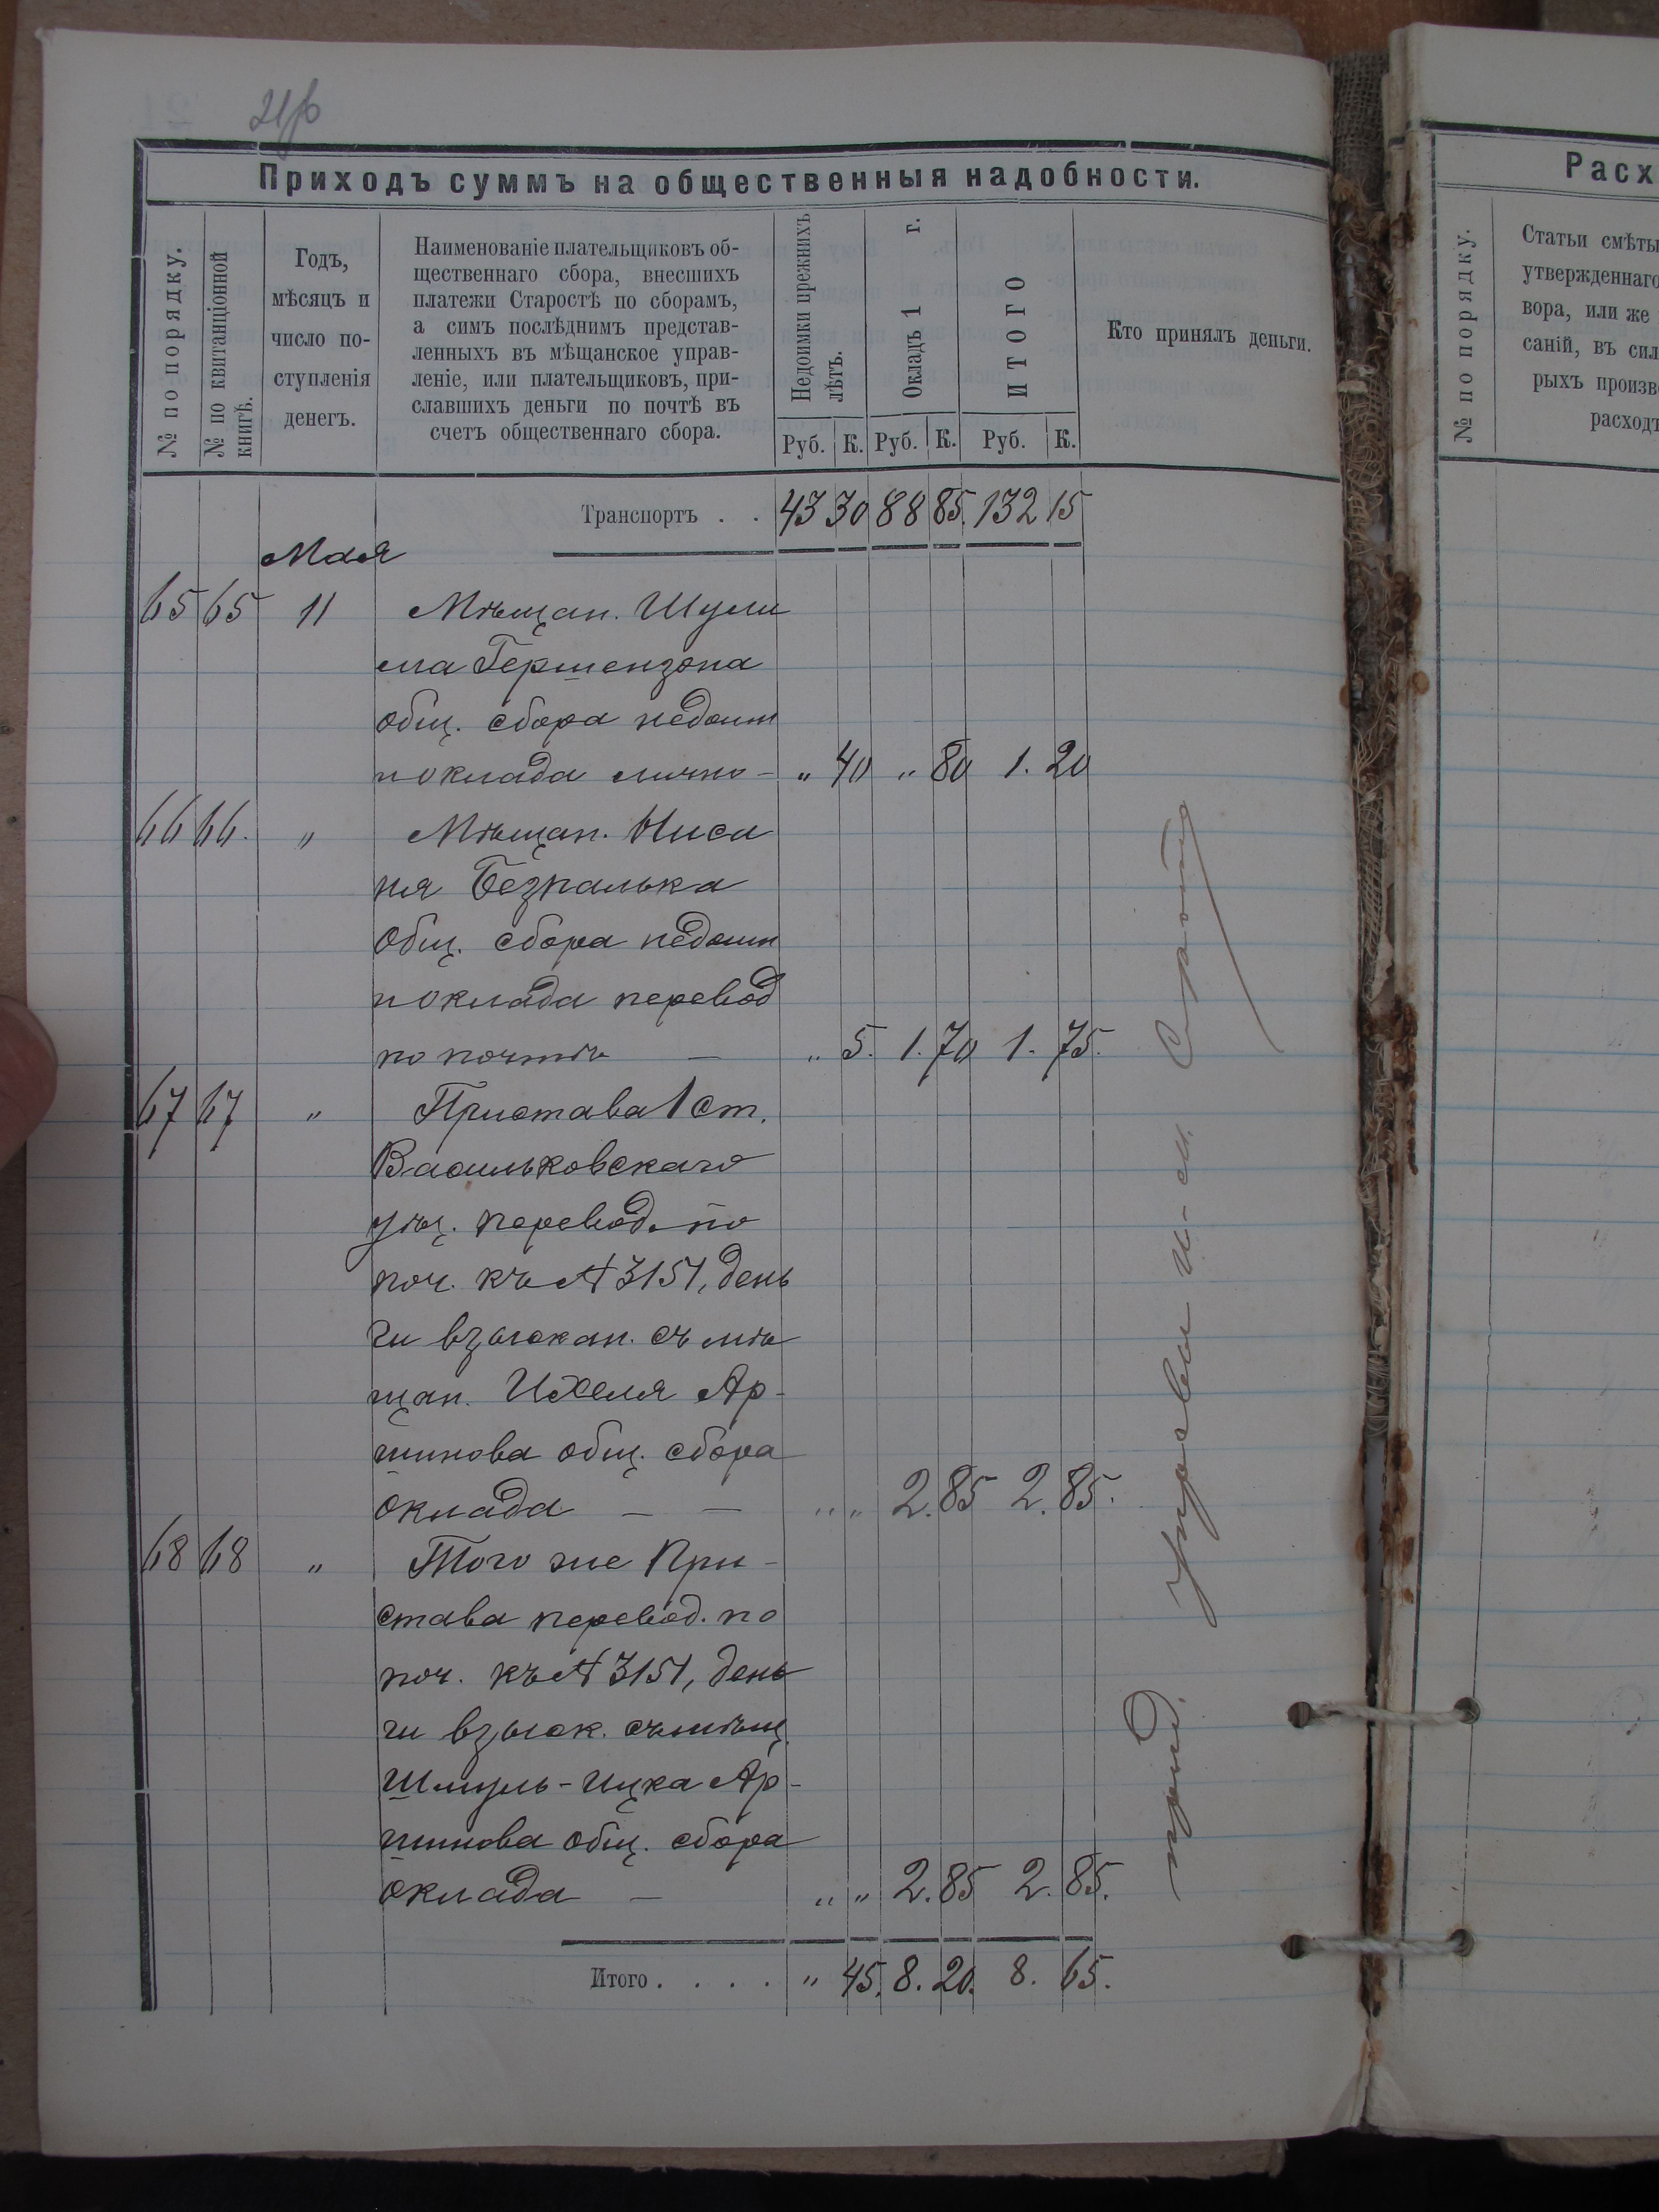 Приходъ суммъ на общественныя надобности.
№ по порядку.
№ по квитанціонной
книгѣ.
Годъ,
мѣсяцъ и
число по-
ступленія
денегъ.
Наименованіе плательщиковъ об-
щественнаго сбора, внесшихъ
платежи Старостѣ по сборамъ,
а симъ послѣднимъ представ-
ленныхъ въ мѣщанское управ-
леніе, или плательщиковъ, при-
славшихъ деньги по почтѣ въ
счетъ общественнаго сбора.
Недоимки прежнихъ
лѣтъ.
Окладъ 1 г.
ИТОГО
Кто принялъ деньги.
Руб. К. Руб. К. Руб. К.
Транспортъ . . 43 30 88 85. 132 15
Мая
65 65 11 Мѣщан. Шули
ма Гершензона
общ. сбора недоим
и оклада лично - „ 40 „ 80 1. 20
66 66. „ Мѣщан. Ниса
ня Безпалька
Общ. сбора недоим
и оклада перевод
по почтѣ — „ 5. 1. 70 1. 75.
67 67 „ Пристава 1 ст.
Васильковскаго
уѣз. перевод. по
поч. къ № 3151, день
ги взыскан. съ мѣ
щан. Ихеля Ар-
шинова общ. сбора
оклада — — „ „ 2. 85 2. 85.
68 68 „ Того же При-
става перевод. по
поч. къ № 3151, день
ги взыск. съ мѣщ.
Шмуль-Ицка Ар-
шинова общ. сбора
оклада — „ „ 2. 85 2. 85.
Итого . . . . „ 45. 8. 20. 8. 65.
Расх
№ по порядку.
Статьи смѣты
утвержденнаго
вора, или же
саній, въ сил
рыхъ произв
расходъ